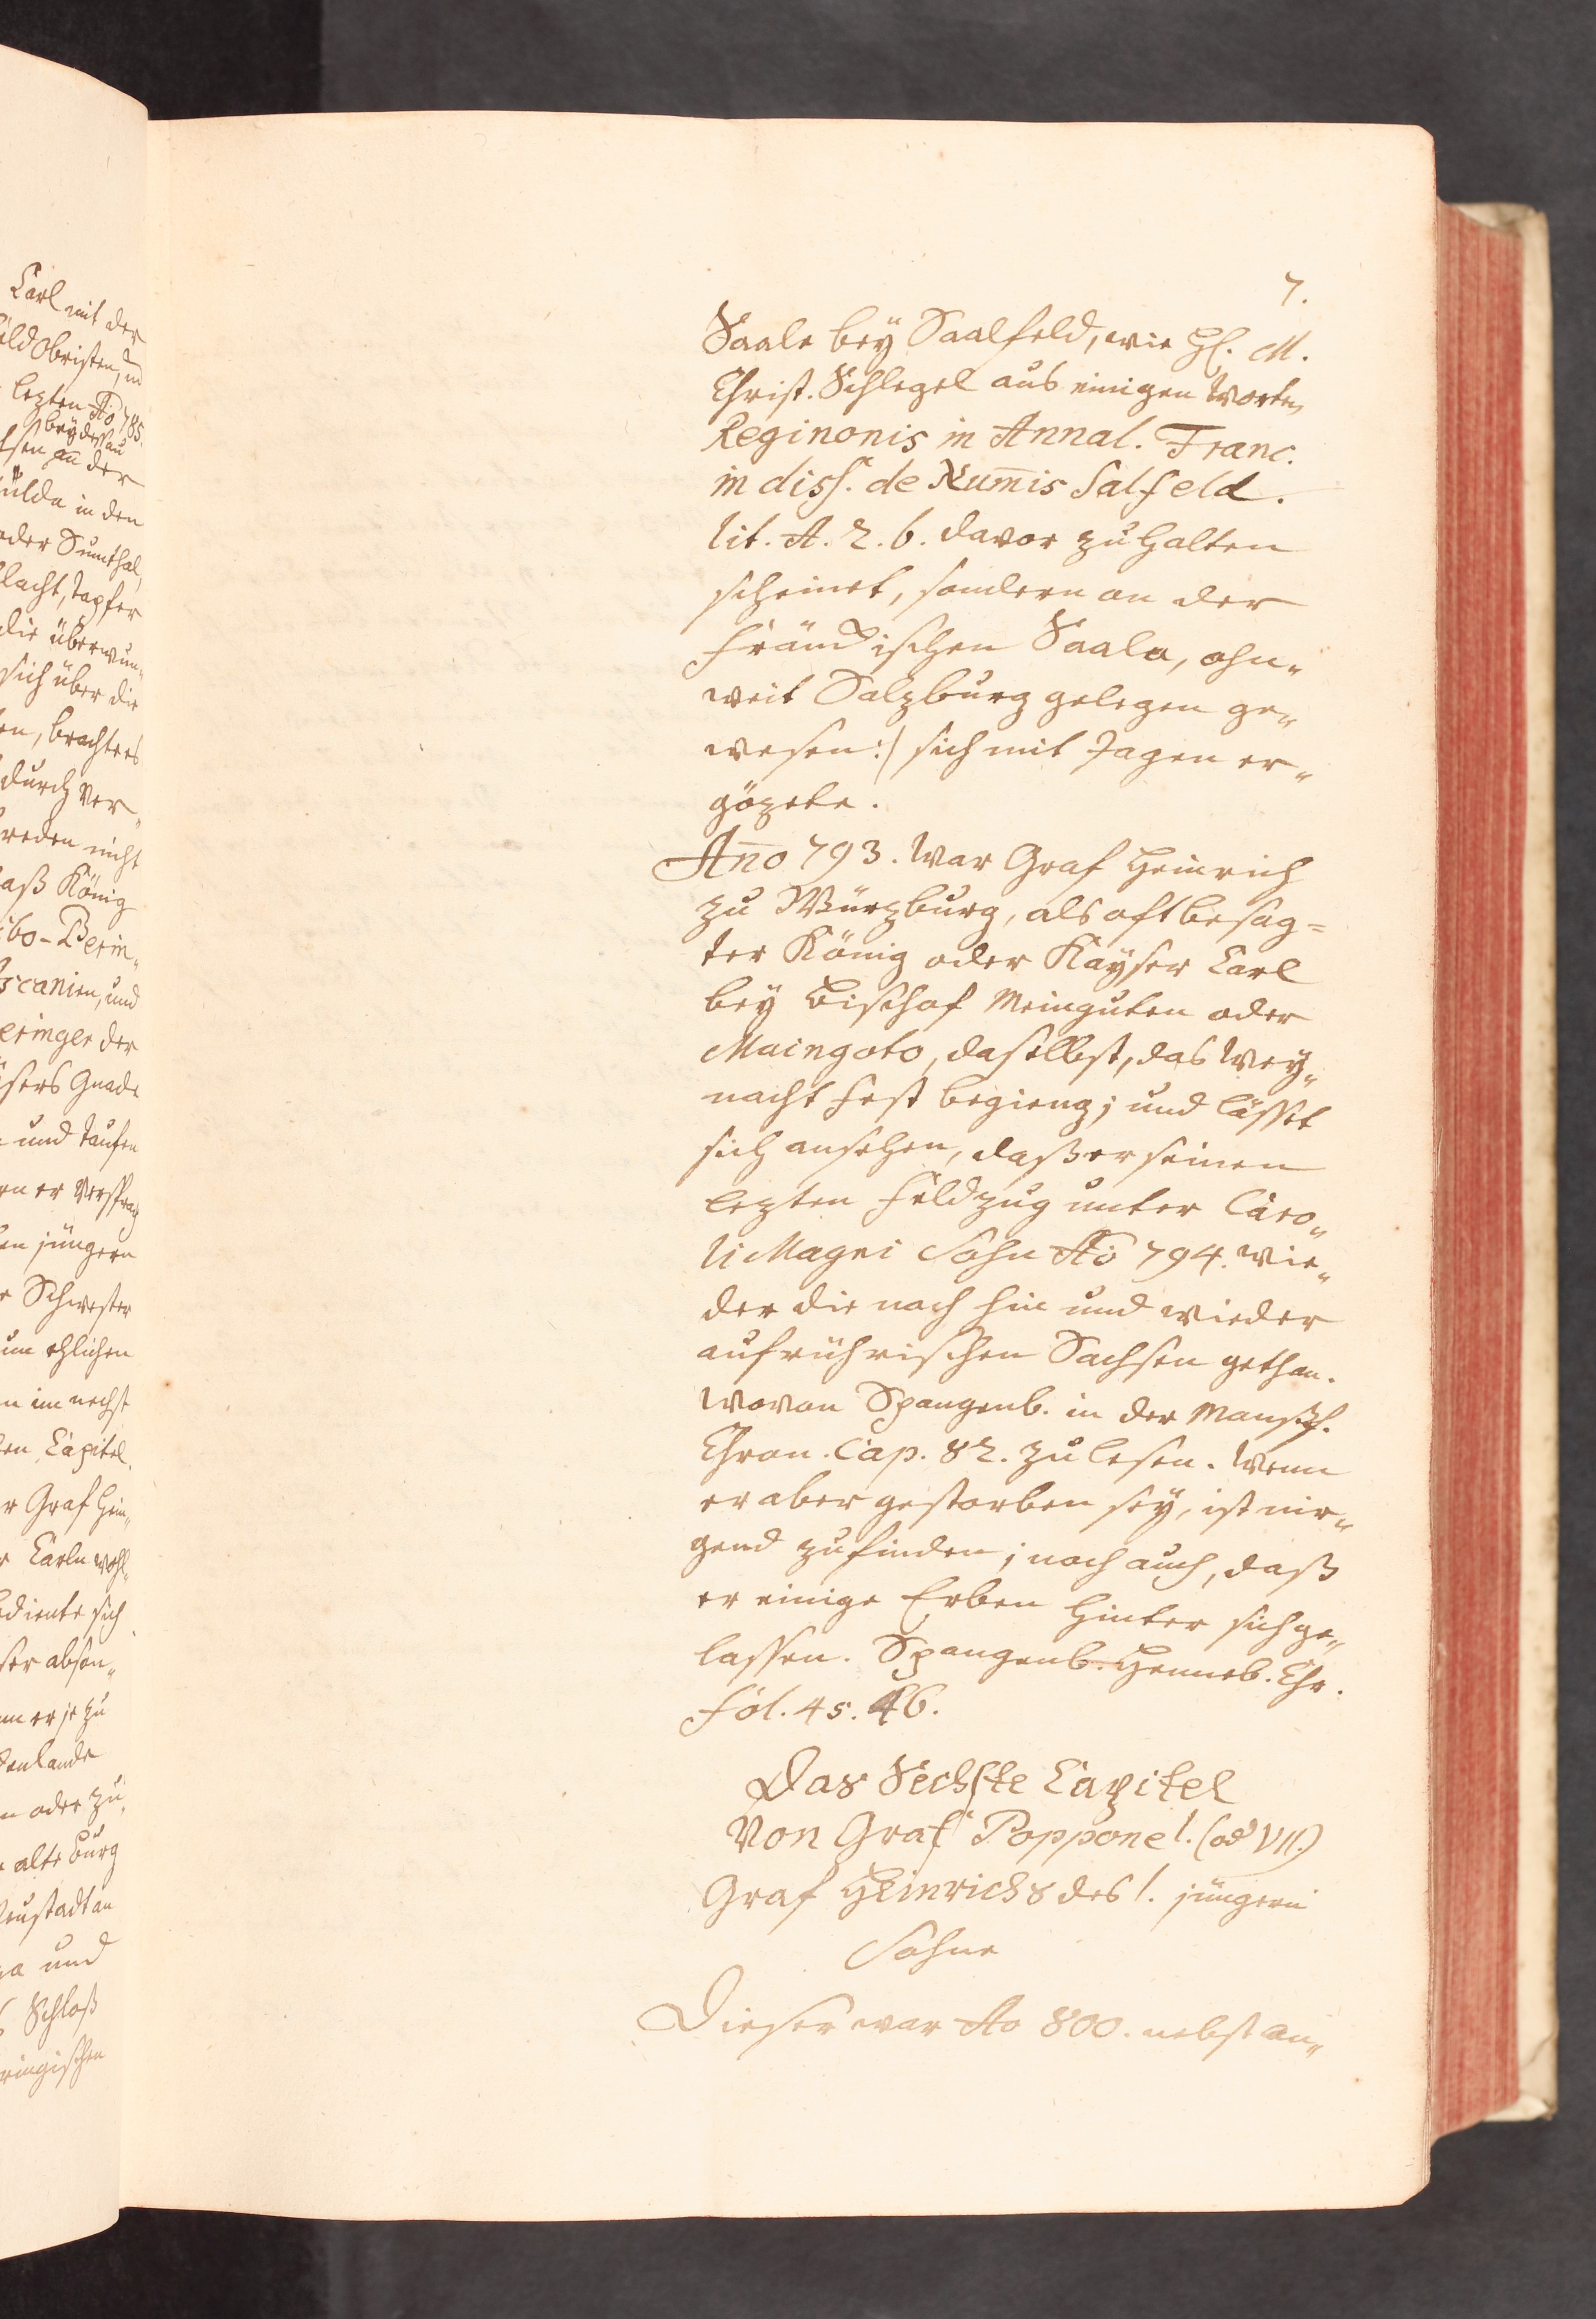 7.
Saale bey Saalfeld, wie H. M.
Christ. Schlegel aus einigen Worten
Reginonis in Annal. Franc.
in diss. de Num̄is Salfeld.
lit. A. 2. b. davor zu halten
scheinet, sondern an der
Fränckischen Saala, ohn„
weit Salzburg gelegen ge„
wesen :/ sich mit Jagen er„
gözete.
An̄o 793. War Graf Heinrich
zu Würzburg, als oftbesag=
ter König oder Kayser Carl
bey Bischof Meinguten oder
Maingoto, daselbst, das Wey„
nacht Fest begieng; und lässet
sich ansehen, daß er seinen
lezten Feldzug unter Caro„
li Magni Sohn Ao 794. wie„
der die noch hin und wieder
aufrührischen Sachsen gethan.
wovon Spangenb. in der Manßf.
Chron. Cap. 82. zu lesen. Wenn
er aber gestorben sey, ist nir„
gend zu finden; noch auch, daß
er einige Erben hinter sich ge„
lassen. Spangenb. Henneb. Chr.
Fol. 45. 46.
Das Sechste Capitel
Von Graf Poppone I. (od VII.)
Graf Heinrichs des I. jüngern
Sohne
Dieser war Ao 800. nebst an„
Carl mit der
ld Obristen, u
lezten Ao 785.
bey dessau
sen an der
ulda in den
oder Sunthal,
lacht, tapfer
die überwun„
sich über die
en, brachte es
durch Ver„
reden nicht
aß König
ibo-Perin„
scanien, und
eringer der
sers Gnade
und taufen
en er versprach
en jüngern
Schwester
um ehlichen
n im nechst
en Capitel.
r Graf Hein„
Carln wohl„
ediente sich
ser abson„
nn er je zu
enlande
n oder zu
alte Burg
eustadt an
a und
Schloß
ringischen